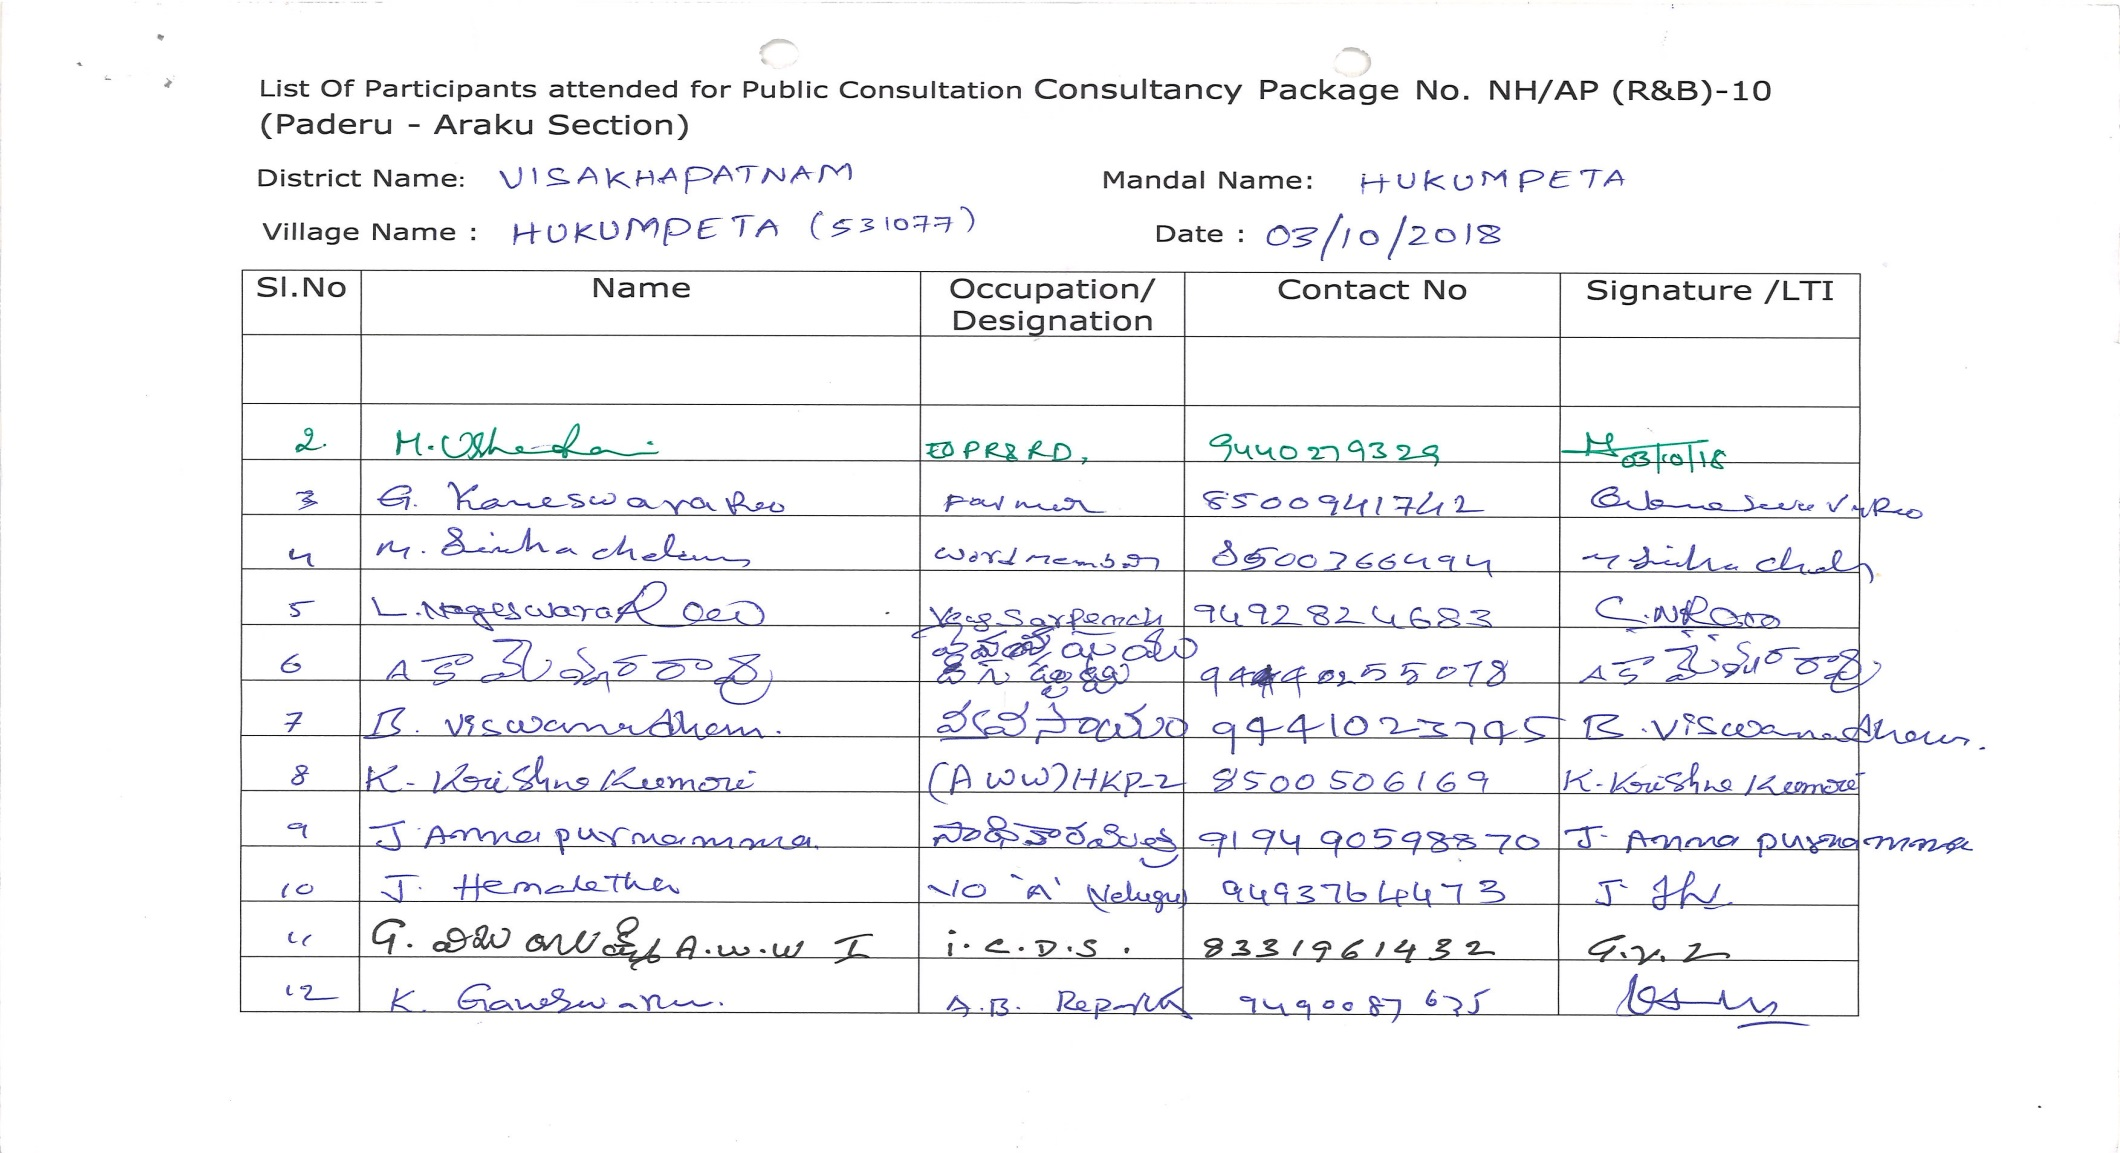 List Of Participants attended for Public Consultation Consultancy Package No. NH/AP (R&B)-10
(Paderu - Araku Section)
District Name: VISAKHAPATNAM Mandal Name: HUKUMPETA
Village Name : HUKUMPETA (531077) Date : 03/10/2018
Sl.No Name Occupation/ Contact No Signature /LTI
Designation
2. M. EOPR&RD, 9440279329 03/10/18
3 G. Kameswara Rao Farmer 8500941742
4 M. Simhachalam word member 8500366494
5 L. Nageswara Rao Sarpench 9492824683
6 A
7 B. Viswanadham. 9441023795 B. Viswanadham.
8 K. Krishna Kumari (AWW) HKP-2 8500506169 K. Krishna Kumari
9 J Annapurnamma 919490598870 J. Annapurnamma
10 J. Hemaletha VO 'A' Velugu 9493764473 J
11 G. A.W.W I i.C.D.S. 8331961432 G.V.L
12 K. Ganeswaru. A.B. 9490087675